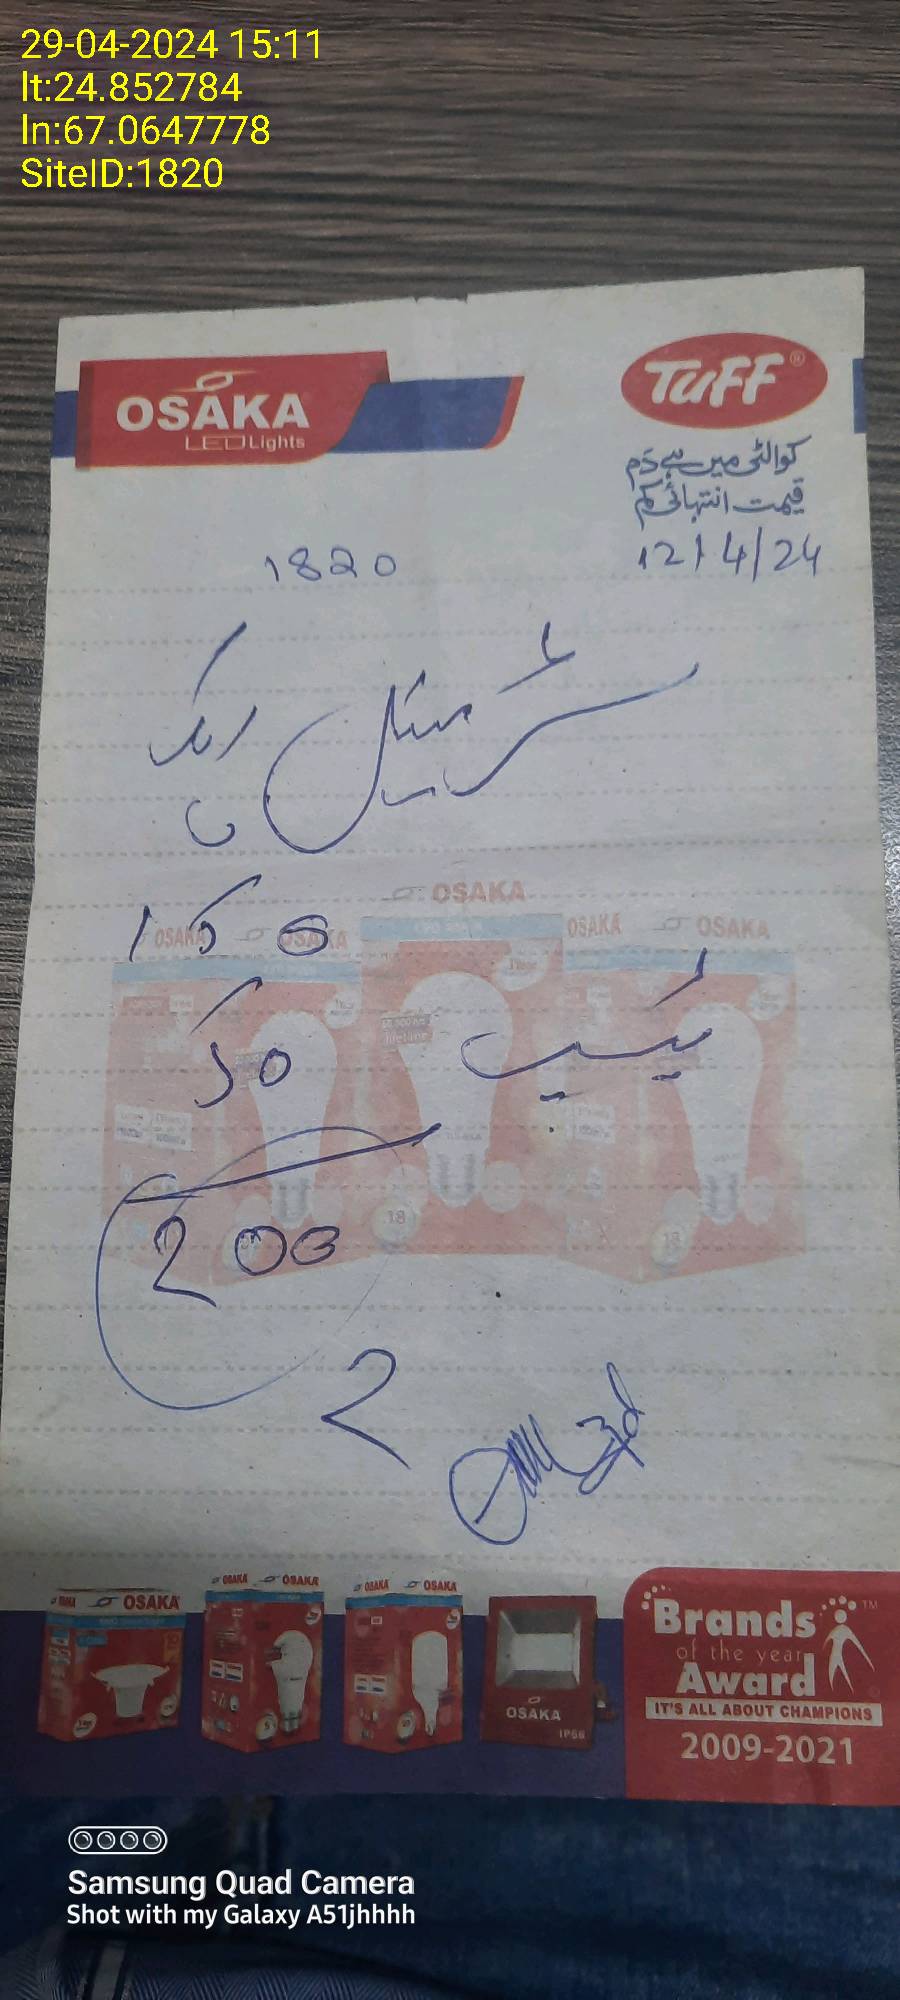 29-04-2024 15:11
lt:24.852784
ln:67.0647778
SiteID:1820
OSAKA
LED Lights
TUFF®
کوالٹی میں ہے دَم
قیمت انتہائی کم
12/4/24
1820
OSAKA
OSAKA OSAKA OSAKA OSAKA
150
50
200
2
OSAKA OSAKA OSAKA OSAKA OSAKA OSAKA
OSAKA
IP66
Brands
of the year
Award
IT'S ALL ABOUT CHAMPIONS
2009-2021
Samsung Quad Camera
Shot with my Galaxy A51jhhhh